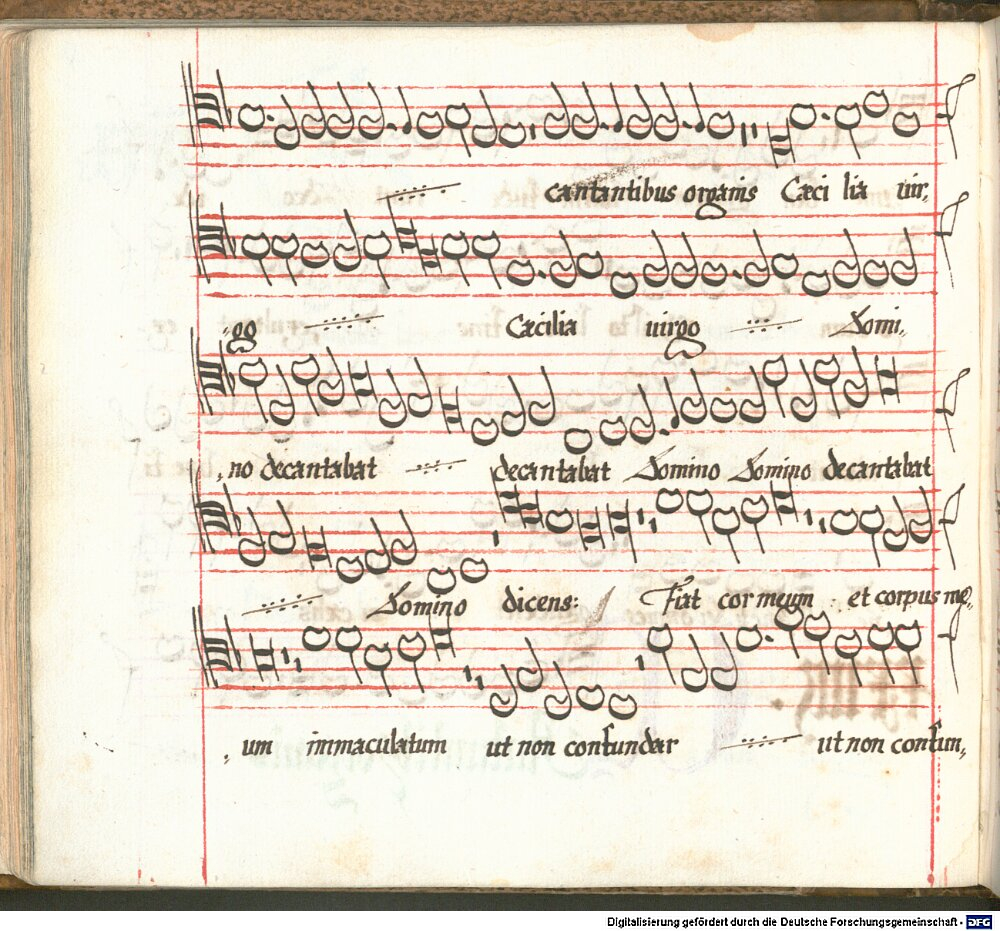 cantantibus organis Cæci lia uir,
,go Cæcilia uirgo Domi,
,no decantabat decantabat Domino Domino decantabat
Domino dicens: Fiat cor meum et corpus me,
,um immaculatum ut non confundar ut non confun,
Digitalisierung gefördert durch die Deutsche Forschungsgemeinschaft - DFG